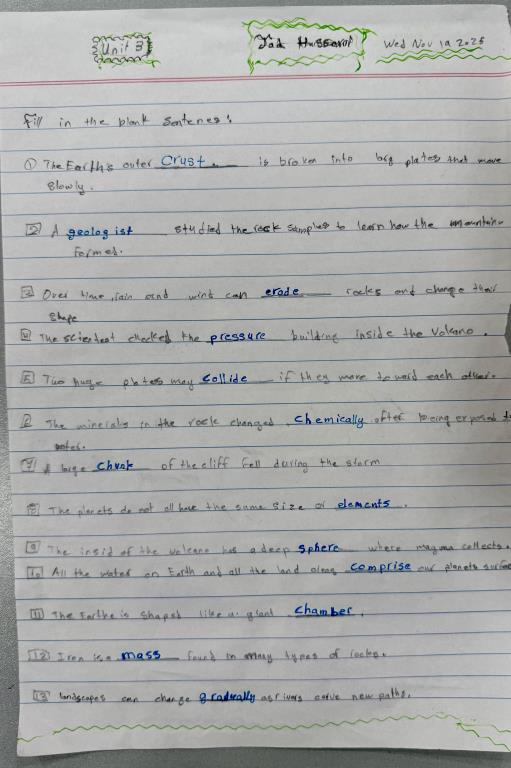 Unit 3
Wed Nov 19 2025
Fill in the blank Sentenes:
① The Earth's outer Crust. is broken into big plates that move
Slowly.
2 A geologist studied the rock samples to learn how the mountain
formed.
3 Over time, rain and wind can erode rocks and change their
Shape
4 The scientest checked the pressure building inside the Volcano.
5 Two huge plates may collide if they move toward each other.
The minerals in the rock changed chemically after being exposed to
water.
7 A large chunk of the cliff fell during the storm
8 The planets do not all have the same Size or elements.
9 The insid of the volcano has a deep sphere where magma collects.
10 All the water on Earth and all the land along comprise our planets surface
11 The Earthe is shaped like a giant chamber.
12 Iron is a mass found in many types of rocks.
13 landscapes can change gradually as rivers carve new paths.